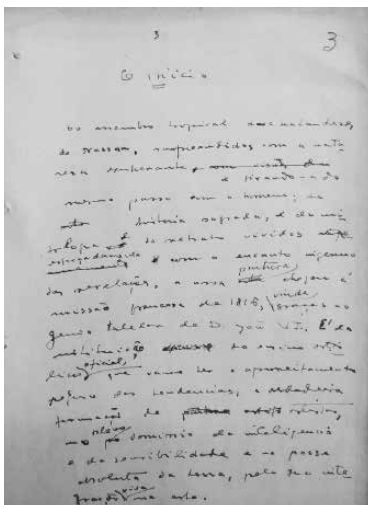 3
3
O início
do assombro tropical dos
de Nassau, surpreendidos com a natu
reza exuberante, com
e tirando-a do
mesmo passo com o homem; da
história sagrada, e da mi
tologia e de retratos vividos
e com o encanto ingenuo
das revelações, a nossa pintura chegou á
missão francesa de 1816, vinda graças ao
genio tutelar de D. João VI. É da
instituição do ensino
oficial,
que vamos ter o aproveitamento
das tendencias, a verdadeira
formação de artistas,
no pleno dominio da inteligencia
e da sensibilidade e na posse
absoluta da terra, pela sua inte
gração viva na arte.